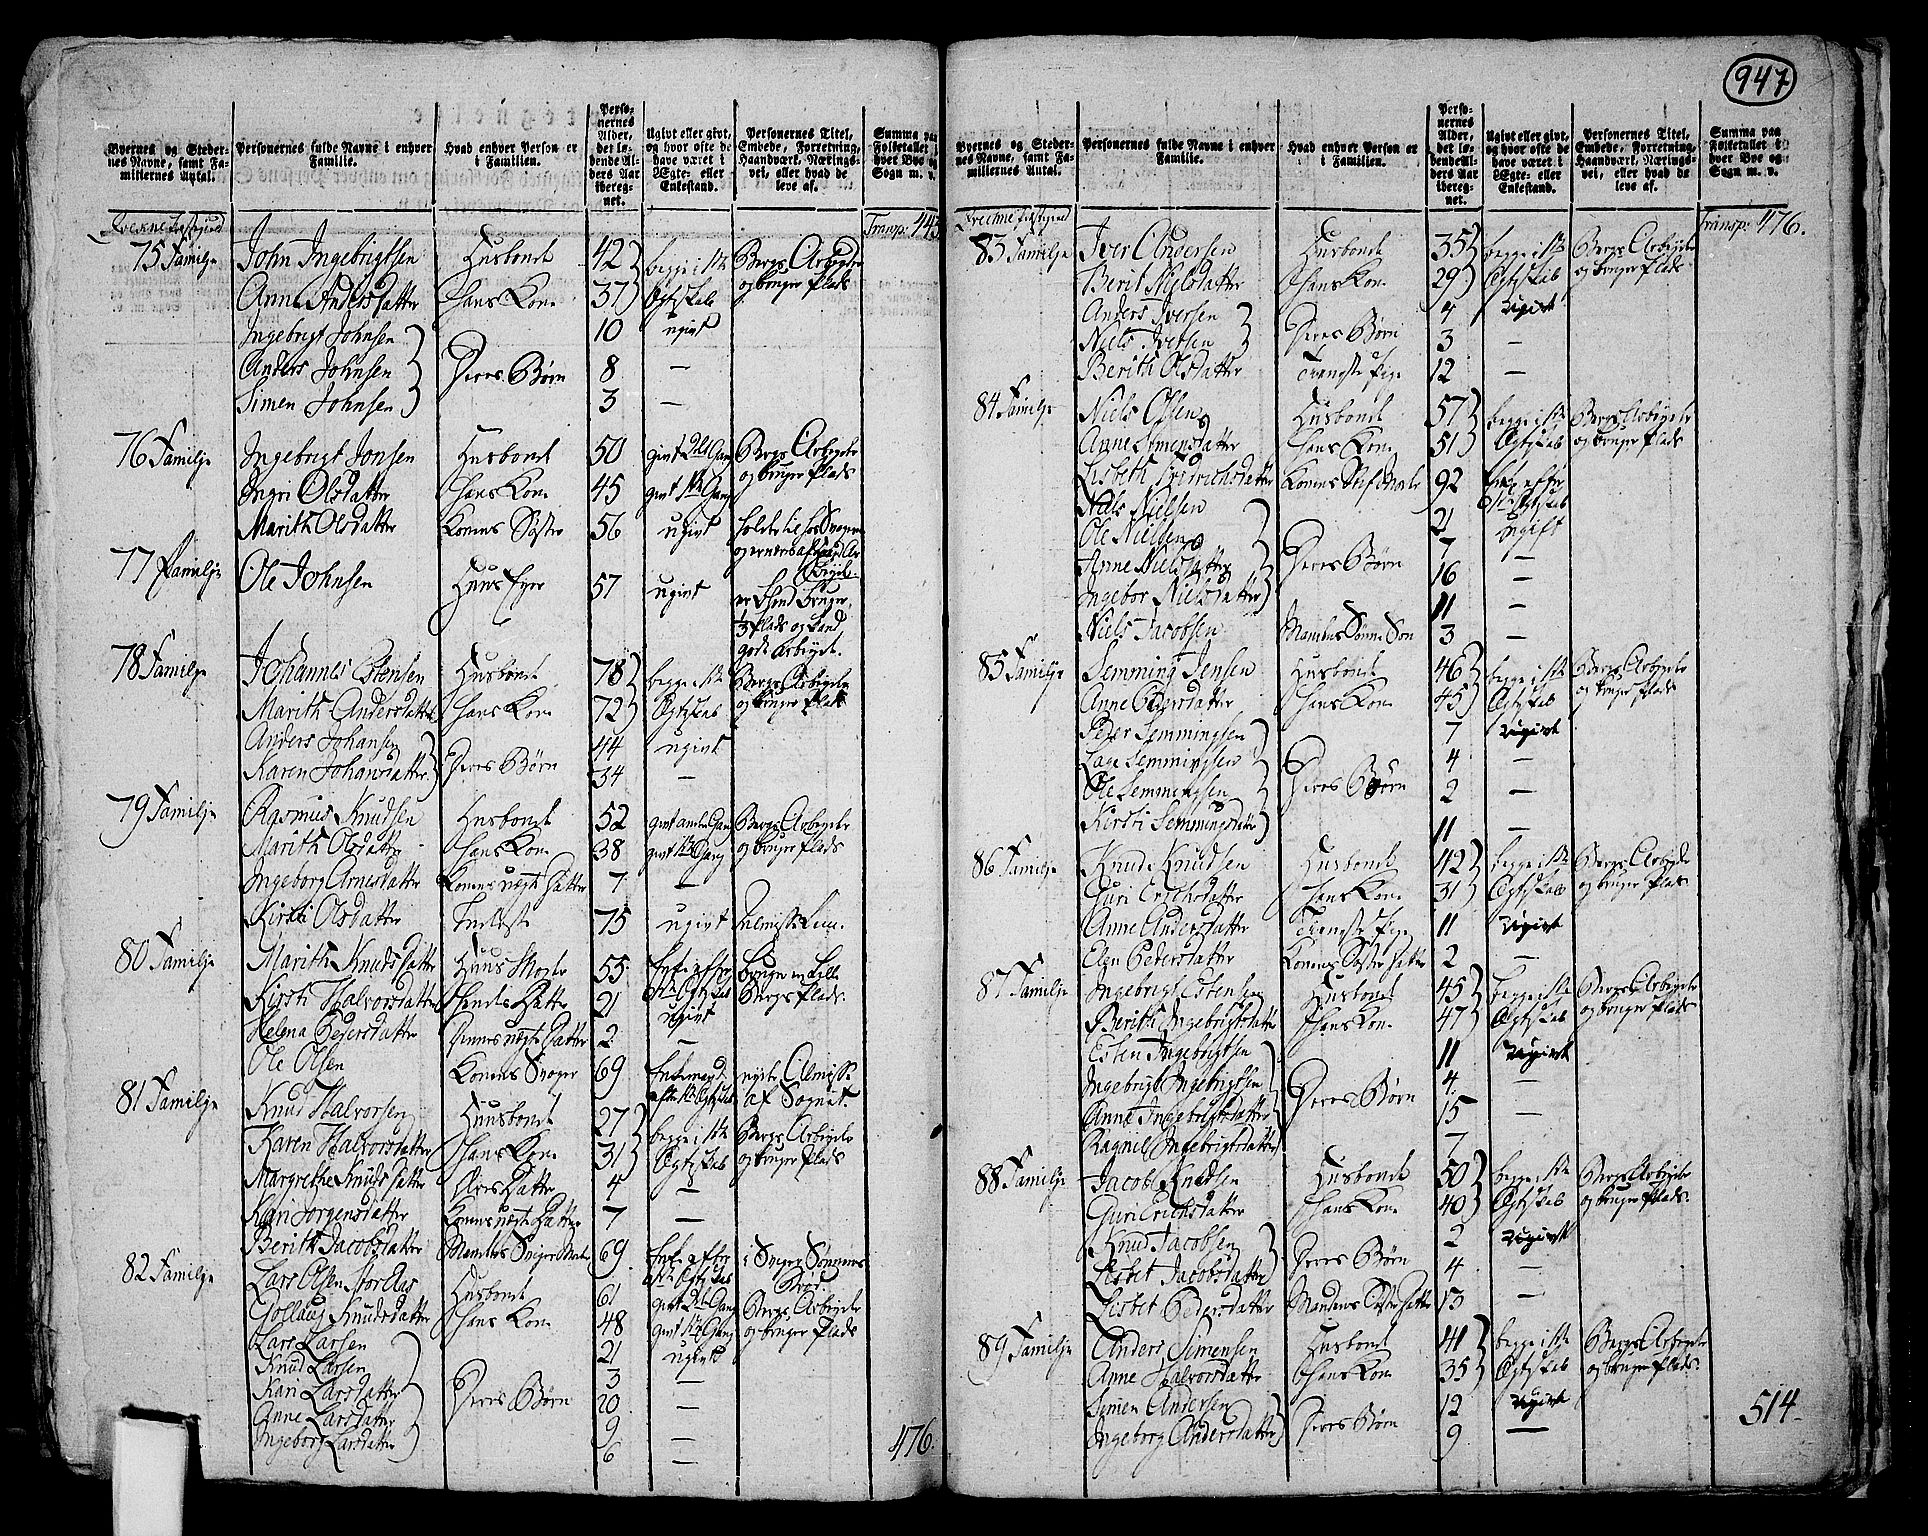 947
Byernes og Stedernes Navne, samt Familiernes Antal.
Personernes fulde Navne i enhver Familie.
Hvad enhver Person er i Familien.
Personernes Alder, det løbende Alders Aar iberegnet.
Ugivt eller givt, og hvor ofte de have været i Ægte- eller Enkestand.
Personernes Titel, Embede, Forretning, Haandværk, Næringsvei, eller hvad de leve af.
Summa paa Folketallet i hver Bye og Sogn m. v.
Transp: 443
75 Familje John Ingebrigtsen Husbond 42 begge i 1te Bergs Arbeyder
Anne Andersdatter Hans Kone 37 Ægteskab og bruger Plads
Ingebrigt Johnsen 10 ugivt
Anders Johnsen Deres Børn 8 —
Simen Johnsen 3 —
76 Familje Ingebrigt Jonsen Husbond 50 givt 2den Gang Bergs Arbeyder
Ingri Olsdatter Hans Kone 45 givt 1te Gang og bruger Plads
Marith Olsdatter Konens Søster 56 ugivt
77 Familje Ole Johnsen Huus Eyer 57 ugivt
78 Familje Johannes Estensen Husbond 78 begge i 1te Bergs Arbeyder
Marith Andersdatter Hans Kone 72 Ægteskab og bruger Plads
Anders Johansen 44 ugivt
Karen Johansdatter Deres Børn 34 —
79 Familje Rasmus Knudsen Husbond 52 givt anden Gang Bergs Arbeyder
Marith Olsdatter Hans Kone 38 givt 1te Gang og bruger Plads
Ingeborg Arnesdatter Konens uægte Datter 7 —
Kirsti Olsdatter Inderst 75 ugivt Almisse Lem
80 Familje Marith Knudsdatter Huus Moder 55 Enke efter bruger en lille
Kirsti Halvorsdatter Hendes Datter 21 1te Ægteskab Bergs Plads
ugivt
Helena Pedersdatter Dennes uægte Datter 2 —
Ole Olsen Konens Svoger 69 Enkemand nyder Almisse
efter 1te Ægteskab af Sognet
81 Familje Knud Halvorsen Huusbond 27 begge i 1te Bergs Arbeyder
Karen Halvorsdatter Hans Kone 31 Ægteskab og bruger Plads
Margrethe Knudsdatter Deres Datter 4 —
Kari Jorgensdatter Konens uægte Datter 7 —
Berith Jacobsdatter Mandens Sviger Moder 69 Enke efter
1te Ægteskab
82 Familje Lars Olsen Stor Aas Husbond 61 givt 2den Gang Bergs Arbeyder
Gollaug Knudsdatter Hans Kone 48 givt 1te Gang og bruger Plads
Lars Larsen 21 ugivt
Knud Larsen 3 —
Kari Larsdatter Deres Børn 20 —
Anne Larsdatter 9 —
Ingeborg Larsdatter 6 —
476.
Byernes og Stedernes Navne, samt Familiernes Antal.
Personernes fulde Navne i enhver Familie.
Hvad enhver Person er i Familien.
Personernes Alder, det løbende Alders Aar iberegnet.
Ugivt eller givt, og hvor ofte de have været i Ægte- eller Enkestand.
Personernes Titel, Embede, Forretning, Haandværk, Næringsvei, eller hvad de leve af.
Summa paa Folketallet i hver Bye og Sogn m. v.
Transp: 476.
83 Familje Iver Andersen Husbond 35 begge i 1te Bergs Arbeyder
Berit Nielsdatter Hans Kone 29 Ægteskab og bruger Plads
Anders Iversen 4 ugivt
Niels Iversen Deres Børn 3 —
Berith Olsdatter Tieneste Pige 12 —
84 Familje Niels Olsen Husbond 57 begge i 1te Bergs Arbeyder
Anne Simensdatter Hans Kone 51 Ægteskab og bruger Plads
Lisbeth Fredrichsdatter Konens Stif Moder 92 Enke efter
Niels Nielsen 21 ugift
Ole Nielsen 7 —
Anne Nielsdatter Deres Børn 16 —
Ingebor Nielsdatter 11 —
Niels Jacobsen Mandens Sønne Søn 3 —
85 Familje Semming Jensen Husbond 46 begge i 1te Bergs Arbeyder
Anne Pedersdatter Hans Kone 45 Ægteskab og bruger Plads
Peder Semmingsen 7 ugivt
Lage Semmingsen 4 —
Ole Semmingsen Deres Børn 2 —
Kirsti Semmingsdatter 11 —
86 Familje Knud Knudsen Husbond 42 begge i 1te Bergs Arbeyder
Guri Erichsdatter Hans Kone 31 Ægteskab og bruger Plads
Anne Andersdatter Tieneste Pige 11 ugivt
Elen Pedersdatter Konens Søster Datter 2 —
87 Familje Ingebrigt Estensen Husbond 45 begge i 1te Bergs Arbeyder
Berith Ingebrigtsdatter Hans Kone 47 Ægteskab og bruger Plads
Esten Ingebrigtsen 11 ugivt
Ingebrigt Ingebrigtsen 4 —
Anne Ingebrigtsdatter Deres Børn 15 —
Ragnil Ingebrigtsdatter 7
88 Familje Jacob Knudsen Husbond 50 begge i 1te Bergs Arbeyder
Guri Erichsdatter Hans Kone 40 Ægteskab og bruger Plads
Knud Jacobsen 2 ugivt
Lisbet Jacobsdatter Deres Børn 4 —
Lisbet Pedersdatter Mandens Søster Datter 13 —
89 Familje Anders Simensen Husbond 41 begge i 1te Bergs Arbeyder
Anne Halvorsdatter Hans Kone 35 Ægteskab og bruger Plads
Simen Andersen 12 ugivt
Ingeborg Andersdatter Deres Børn 9 —
514